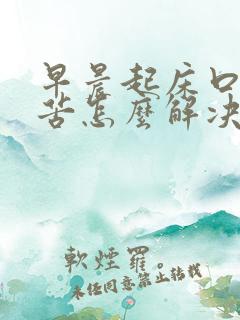 早晨起床口
苦怎麼解決
軟煙羅。
未经同意禁止转载